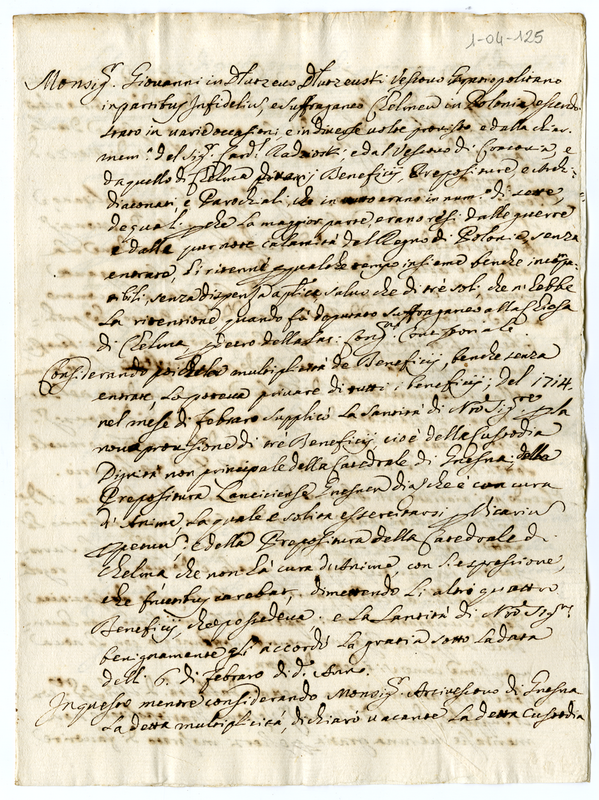 1-04-125
Monsig.r Giovanni in Dlurzewo Dlurzewski Vescovo
in partibus Infidelium, e suffraganeo Chelmen in Polonia, essendo
stato in varie occasioni, e in diverse volte provisto, e dalla ch: a:
mem.a del Sig.r Card.l Radzioski, e dal Vescovo di Cracovia, e
da quello di Chelma di varij Beneficij, Prepositure, e Archi
diaconati, e Parochiali, che in erano in num.o di sette,
de quali, p che la maggior parte, erano resi dalle guerre
e dalle pur note calamità del Regno di Polonia, senza
entrate, li ritenne p qualche tempo insieme benche incompa
tibili, senza dispensa aplica salvo che di trè soli, che n'hebbe
la ritenzione quando fù deputato suffraganeo alla Chiesa
di Chelma, della Sac: Cong.ne Concistoriale.
Considerando poi che la multiplicità de Beneficij, benche senza
entrate, lo poteva privare di tutti i beneficij; del 1714.
nel mese di Febraro supplicò la Santità di Nro Sig.re p la
nova provisione di trè Beneficij, cioè della Custodia
Dignità non principale della Catedrale di Gnesna; della
Prepositura Lanciciense Gnesnen Dia che è con cura
d'Anime, la quale è solita essercitarsi p Vicarium
perpetuum, e della Prepositura della Catedrale di
Chelma, che non hà cura d'Anime, con l'espressione,
che fructus vacabat, dimettendo li altri quattro
Beneficij, che possedeva: e la Santità di Nro Sig.re
benignamente gli accordò la gratia sotto la data
delli 6. di Febraro di d.o Anno.
In questo mentre considerando Monsig.r Arcivescovo di Gnesna
la detta multiplicità, dichiarò vacante la detta Custodia